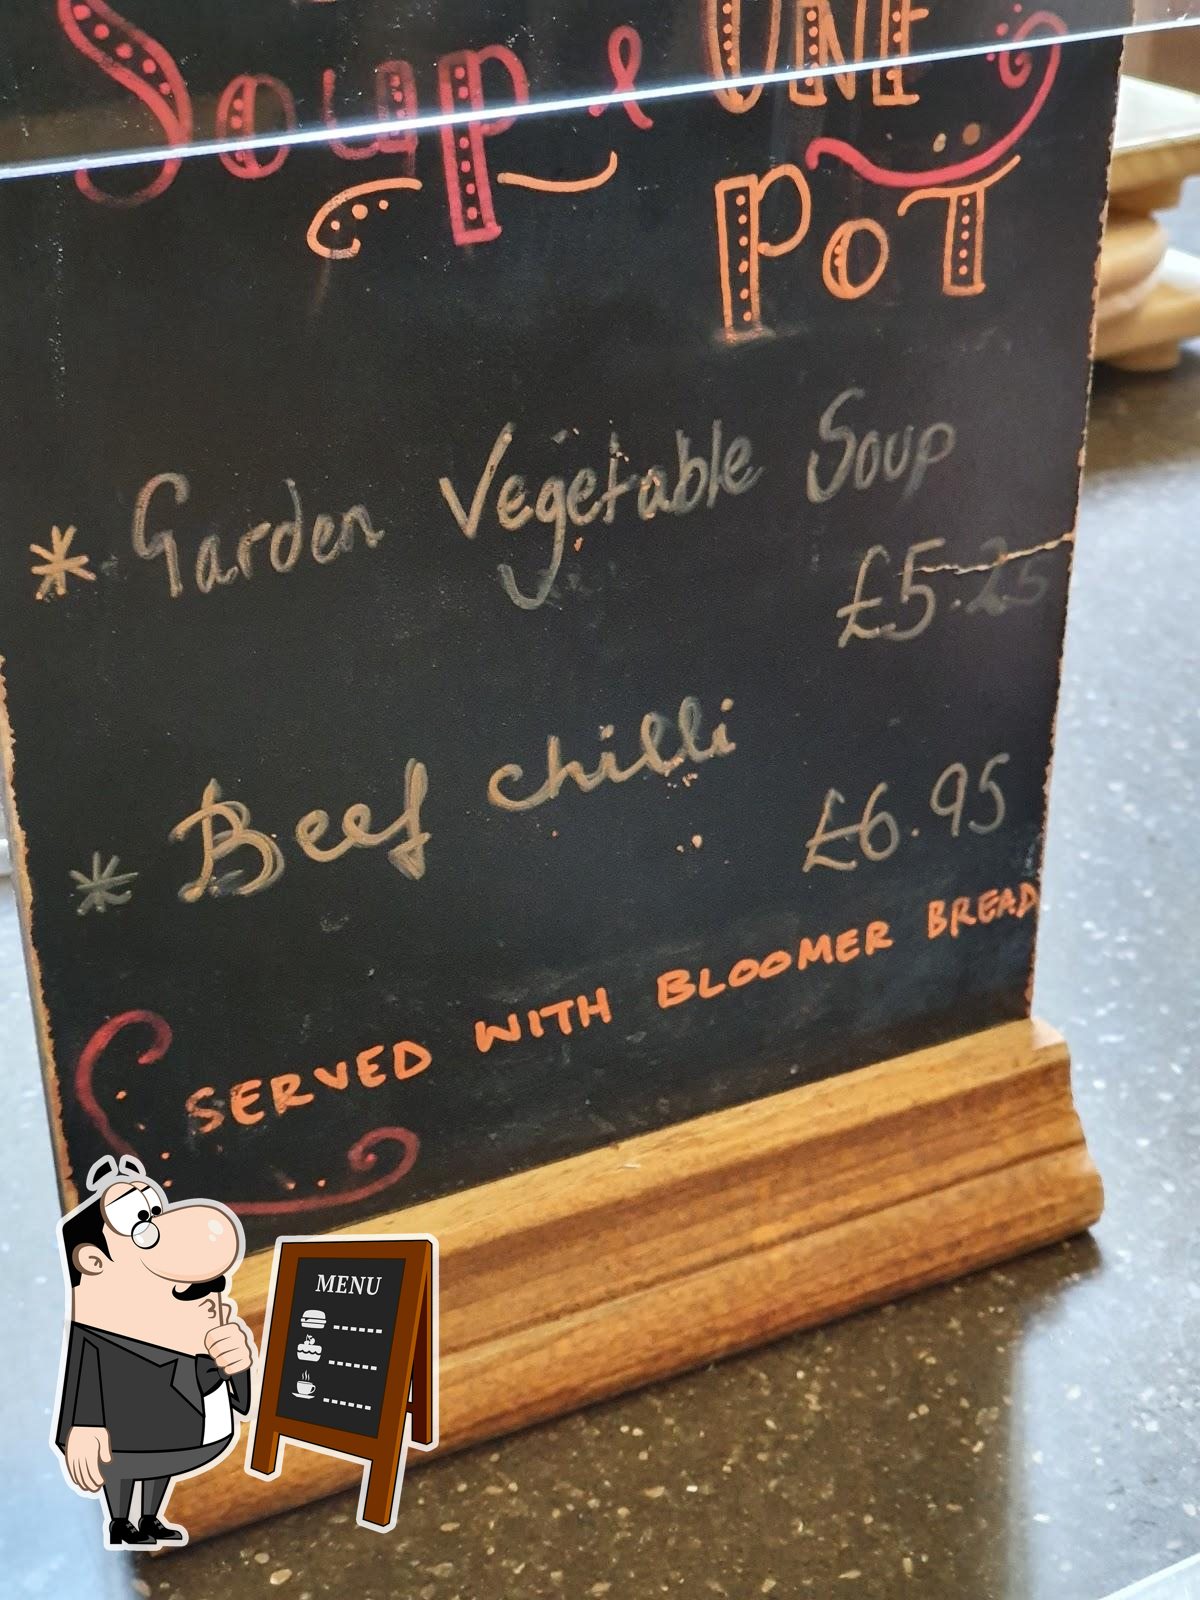 Soup & ONE
POT
* Garden Vegetable Soup
£5.25
* Beef chilli
£6.95
SERVED WITH BLOOMER BREAD
MENU